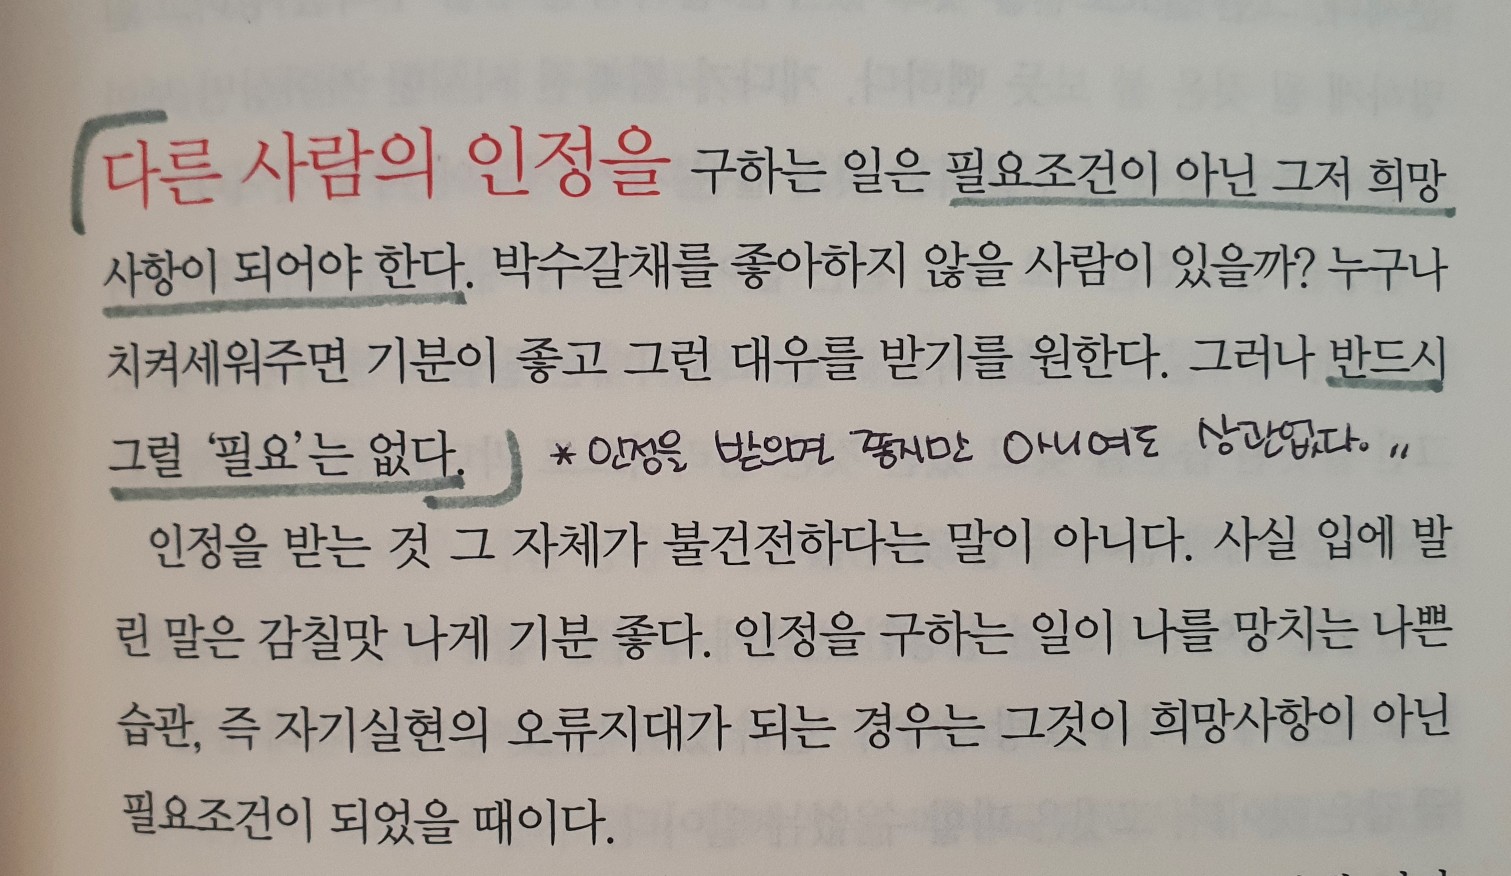 다른 사람의 인정을 구하는 일은 필요조건이 아닌 그저 희망
사항이 되어야 한다. 박수갈채를 좋아하지 않을 사람이 있을까? 누구나
치켜세워주면 기분이 좋고 그런 대우를 받기를 원한다. 그러나 반드시
그럴 ‘필요’는 없다. * 인정을 받으면 좋지만 아니여도 상관없다.〃
인정을 받는 것 그 자체가 불건전하다는 말이 아니다. 사실 입에 발
린 말은 감칠맛 나게 기분 좋다. 인정을 구하는 일이 나를 망치는 나쁜
습관, 즉 자기실현의 오류지대가 되는 경우는 그것이 희망사항이 아닌
필요조건이 되었을 때이다.